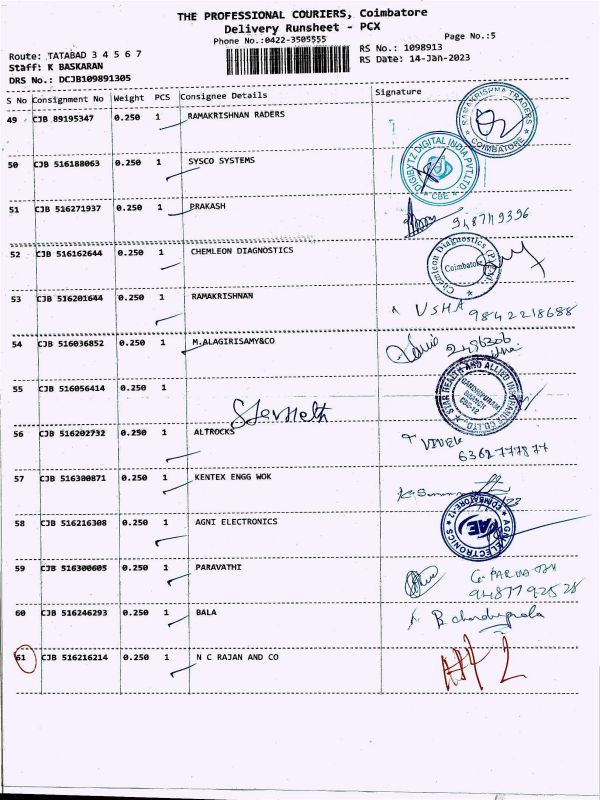 THE PROFESSIONAL COURIERS, Coimbatore
Delivery Runsheet - PCX
Phone No.:0422-3505555
Page No.:5
Route: TATABAD 3 4 5 6 7
RS No.: 1098913
Staff: K BASKARAN
RS Date: 14-Jan-2023
DRS No.: DCJB109891305
S No Consignment No Weight PCS Consignee Details Signature
49 CJB 89195347 0.250 1 RAMAKRISHNAN RADERS
RAMAKRISHNA TRADERS
COIMBATORE
50 CJB 516188063 0.250 1 SYSCO SYSTEMS
DIGIBYTZ DIGITAL INDIA PVT.LTD.
CBE
51 CJB 516271937 0.250 1 PRAKASH
9487119396
52 CJB 516162644 0.250 1 CHEMLEON DIAGNOSTICS
Chemleon Diagnostics (P)
Coimbatore
53 CJB 516201644 0.250 1 RAMAKRISHNAN
USHA 9842218688
54 CJB 516036852 0.250 1 M.ALAGIRISAMY&CO
2496306
55 CJB 516056414 0.250 1
STAR HEALTH AND ALLIED INSURANCE CO.LTD.
GANDHIPURAM
BRANCH
CBE-12
56 CJB 516202732 0.250 1 ALTROCKS
6362777877
57 CJB 516300871 0.250 1 KENTEX ENGG WOK
58 CJB 516216308 0.250 1 AGNI ELECTRONICS
AGNI ELECTRONICS
COIMBATORE-12
AE
59 CJB 516300605 0.250 1 PARAVATHI
9487792528
60 CJB 516246293 0.250 1 BALA
61 CJB 516216214 0.250 1 N C RAJAN AND CO